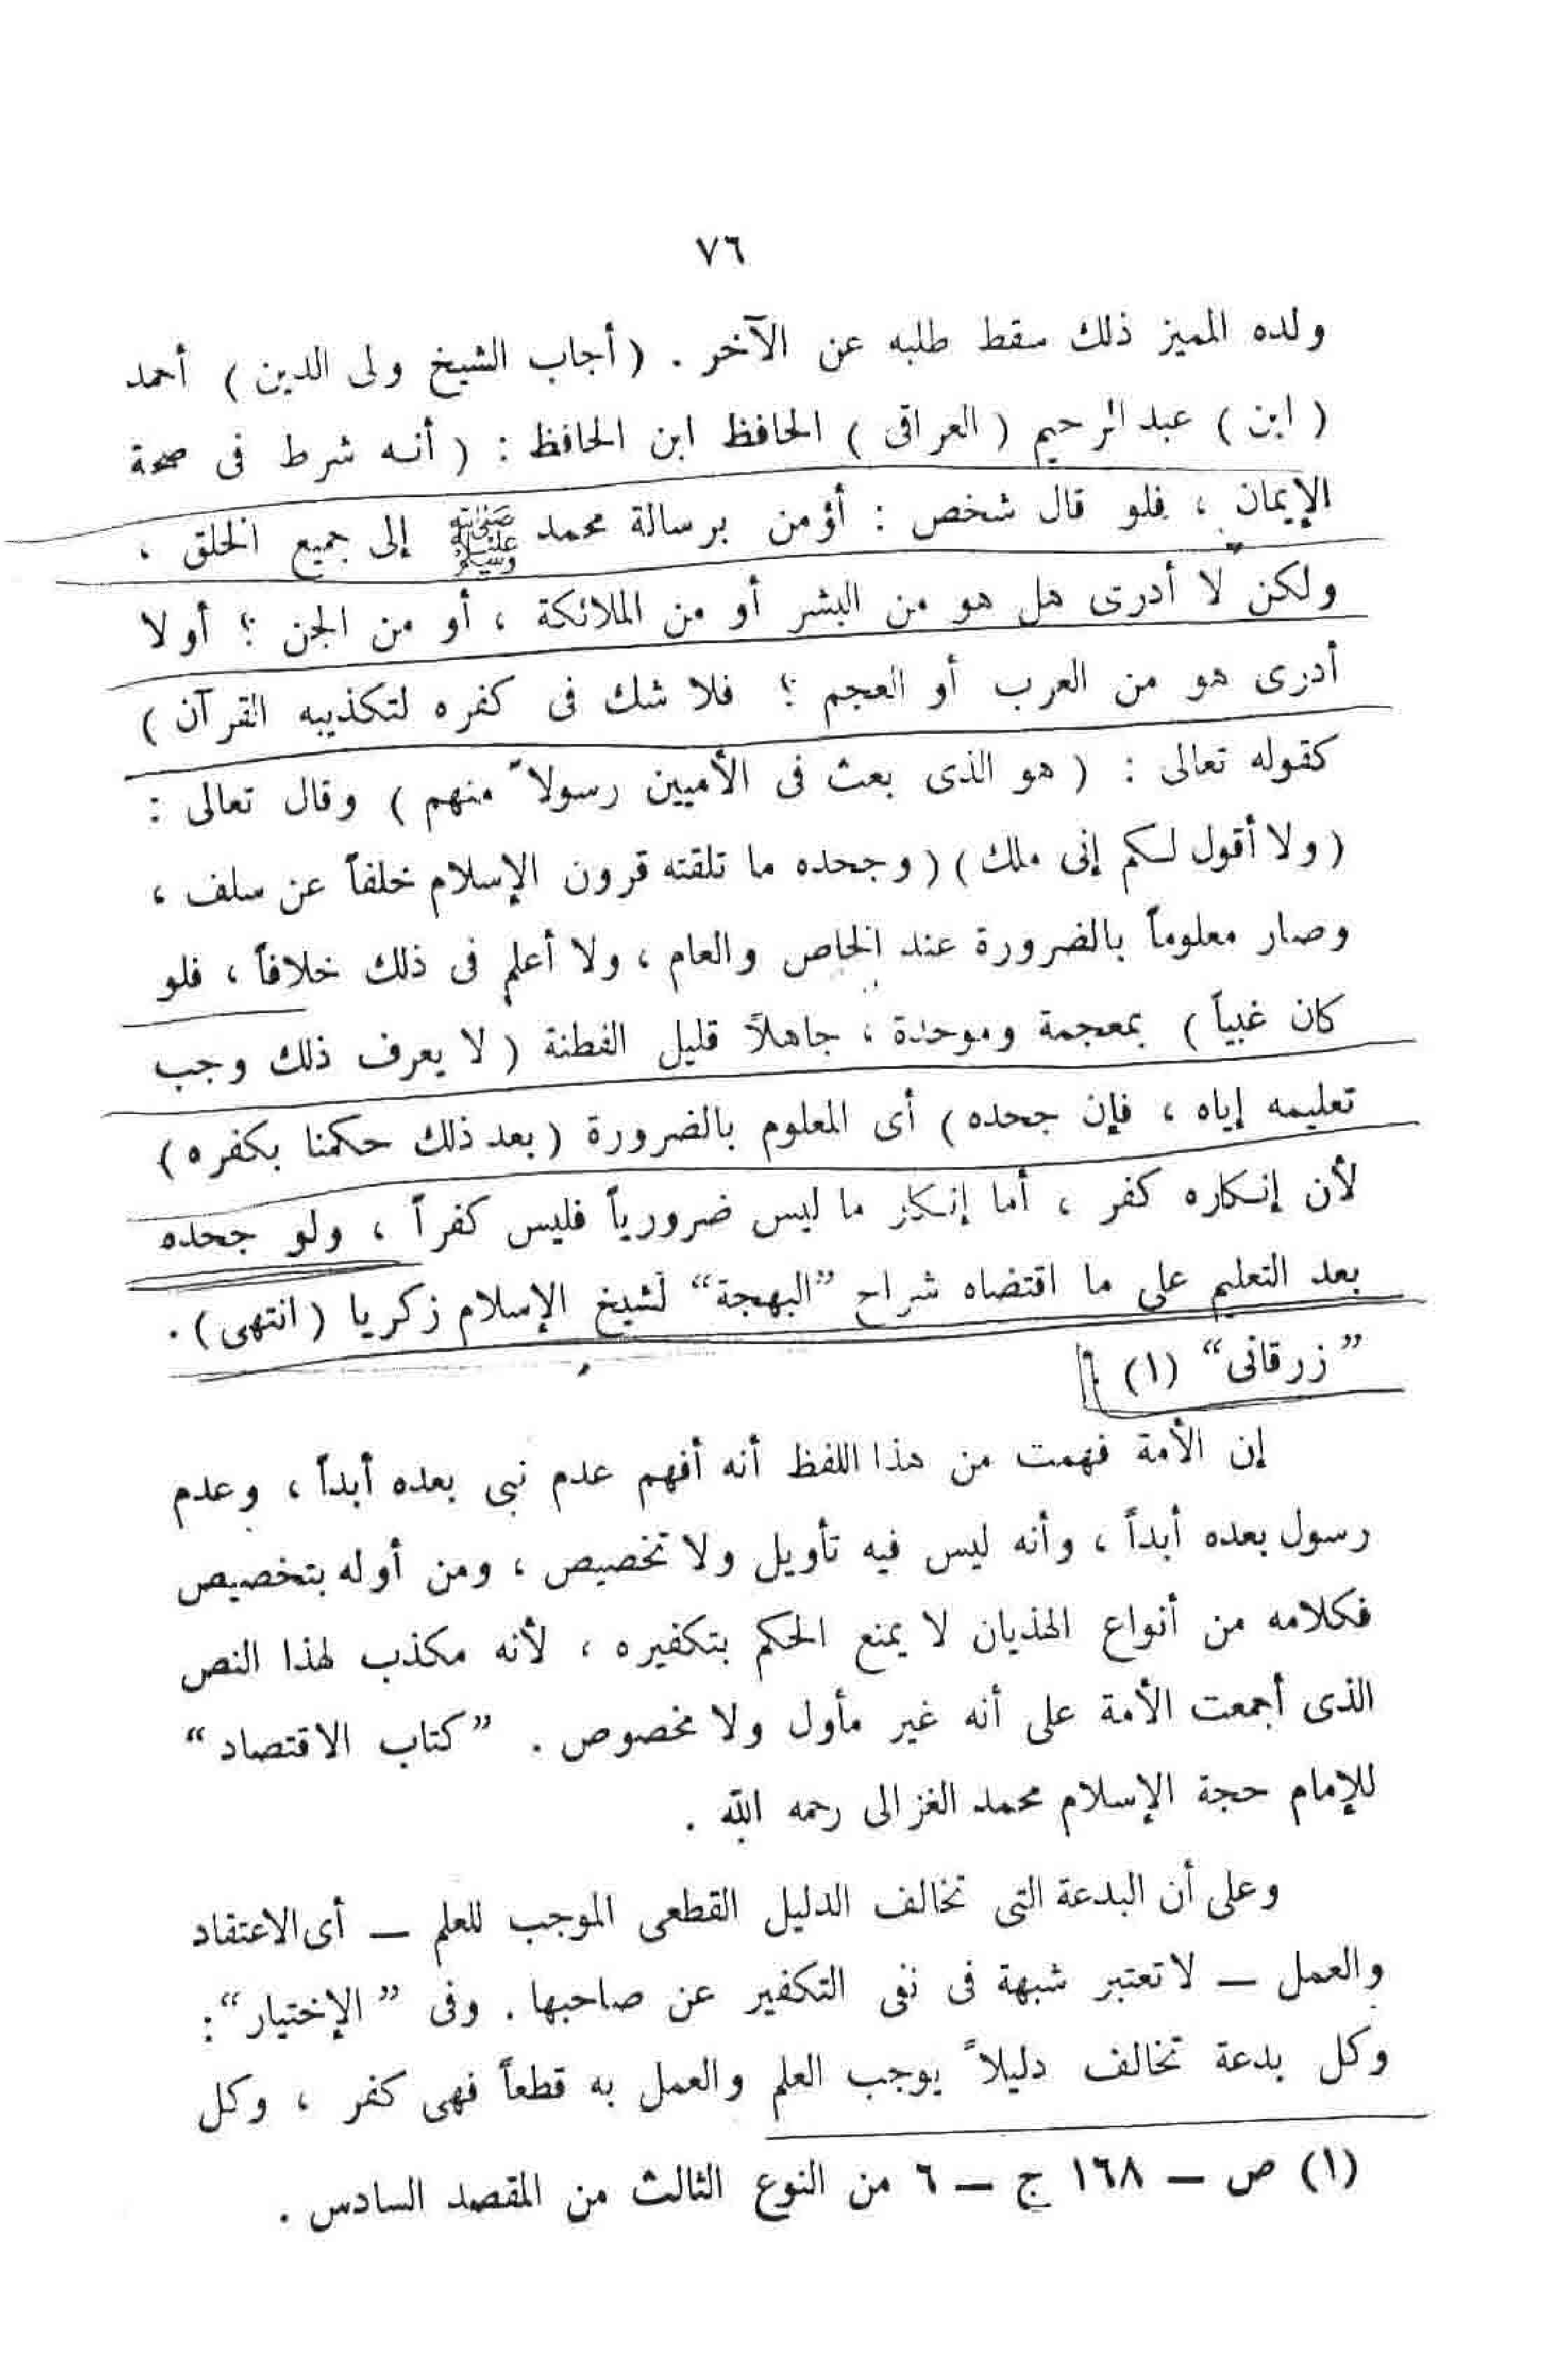 ٧٦
ولده المميز ذلك سقط طلبه عن الآخر . ( أجاب الشيخ ولى الدين ) أحمد
( ابن ) عبد الرحيم ( العراقى ) الحافظ ابن الحافظ : ( أنه شرط فى صحة
الإيمان ، فلو قال شخص : أؤمن برسالة محمد ﷺ إلى جميع الخلق ،
ولكن لا أدرى هل هو من البشر أو من الملائكة ، أو من الجن ؟ أو لا
أدرى هو من العرب أو العجم ؟ فلا شك فى كفره لتكذيبه القرآن )
كقوله تعالى : ( هو الذى بعث فى الأميين رسولاً منهم ) وقال تعالى :
( ولا أقول لكم إنى ملك ) ( وجحده ما تلقته قرون الإسلام خلفاً عن سلف ،
وصار معلوماً بالضرورة عند الخاص والعام ، ولا أعلم فى ذلك خلافاً ، فلو
كان غبياً ) بمعجمة وموحدة ، جاهلاً قليل الفطنة ( لا يعرف ذلك وجب
تعليمه إياه ، فإن جحده ) أى المعلوم بالضرورة ( بعد ذلك حكمنا بكفره )
لأن إنكاره كفر ، أما إنكار ما ليس ضرورياً فليس كفراً ، ولو جحده
بعد التعليم على ما اقتضاه شراح ”البهجة“ لشيخ الإسلام زكريا ( انتهى ) .
”زرقانى“ (١)
إن الأمة فهمت من هذا اللفظ أنه أفهم عدم نبى بعده أبداً ، وعدم
رسول بعده أبداً ، وأنه ليس فيه تأويل ولا تخصيص ، ومن أوله بتخصيص
فكلامه من أنواع الهذيان لا يمنع الحكم بتكفيره ، لأنه مكذب لهذا النص
الذى أجمعت الأمة على أنه غير مأول ولا مخصوص . ”كتاب الاقتصاد“
للإمام حجة الإسلام محمد الغزالى رحمه الله .
وعلى أن البدعة التى تخالف الدليل القطعى الموجب للعلم ــ أى الاعتقاد
والعمل ــ لا تعتبر شبهة فى نفى التكفير عن صاحبها . وفى ”الإختيار“ :
وكل بدعة تخالف دليلاً يوجب العلم والعمل به قطعاً فهى كفر ، وكل
(١) ص ــ ١٦٨ ج ــ ٦ من النوع الثالث من المقصد السادس .